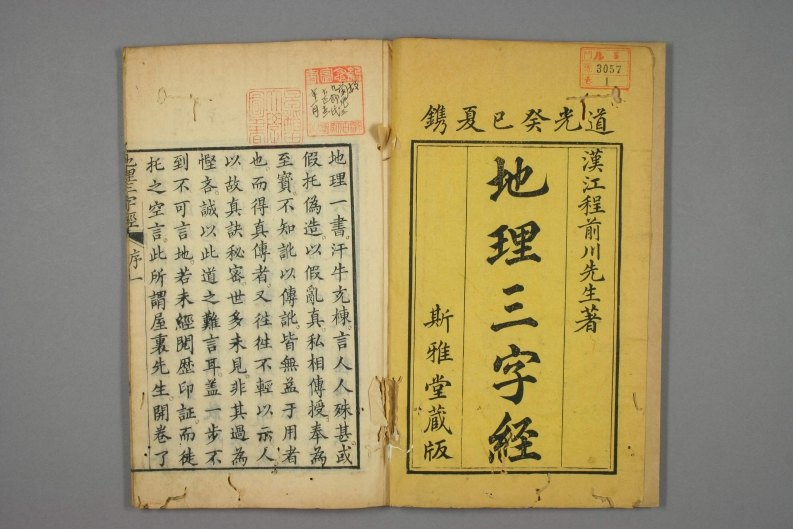 道光癸巳夏鐫
漢江程前川先生著
地理三字經
斯雅堂藏版
3057
1
地理一書。汗牛充棟。言人人殊。甚或
假托偽造。以假亂真。私相傳授。奉為
至寶。不知訛以傳訛。皆無益于用者
也。而得真傳者。又徃徃不輕以示人
以故真訣秘密。世多未見。非其過為
慳吝。誠以此道之難言耳。盖一步不
到不可言地。若未經閱歷印証。而徒
托之空言。此所謂屋裏先生。開卷了
地理三字經
序
一